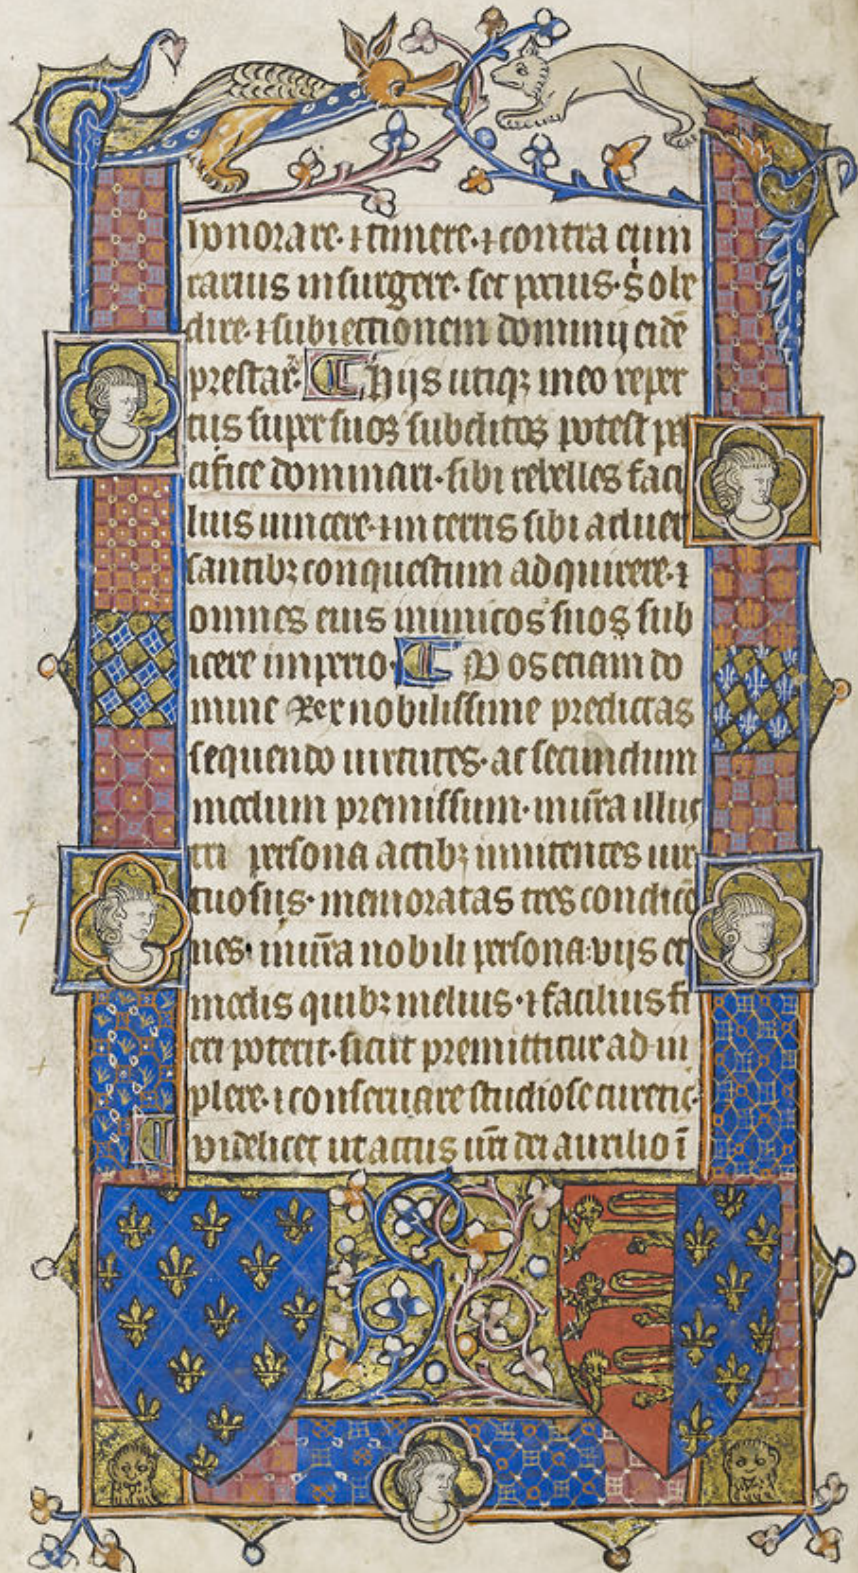 honorare· ⁊ timere· ⁊ contra eum
tarius insurgere· set prius· s obe
dire· ⁊ subiectionem dominij eidē
prestar̄· Hijs utiqꝫ in eo reper
tis super suos subditos potest pa
cifice dominari· sibi rebelles faci
lius uincere· ⁊ in terris sibi aduer
santibꝫ conquestum adquirere· ⁊
omnes eius inimicos suos sub
icere imperio· Vos eciam do
mine Rex nobilissime predictas
sequendo uirtutes· ac secundum
modum premissum· in ur̄a illus
tri persona actibꝫ innitentes uir
tuosis· memoratas tres condicō
nes· in ur̄a nobili persona· viis et
modis quibꝫ melius· ⁊ facilius fi
eri poterit· sicut premittitur ad in
plere· ⁊ conseruare studiose curetis·
videlicet ut actus ur̄i dei auxilio ī